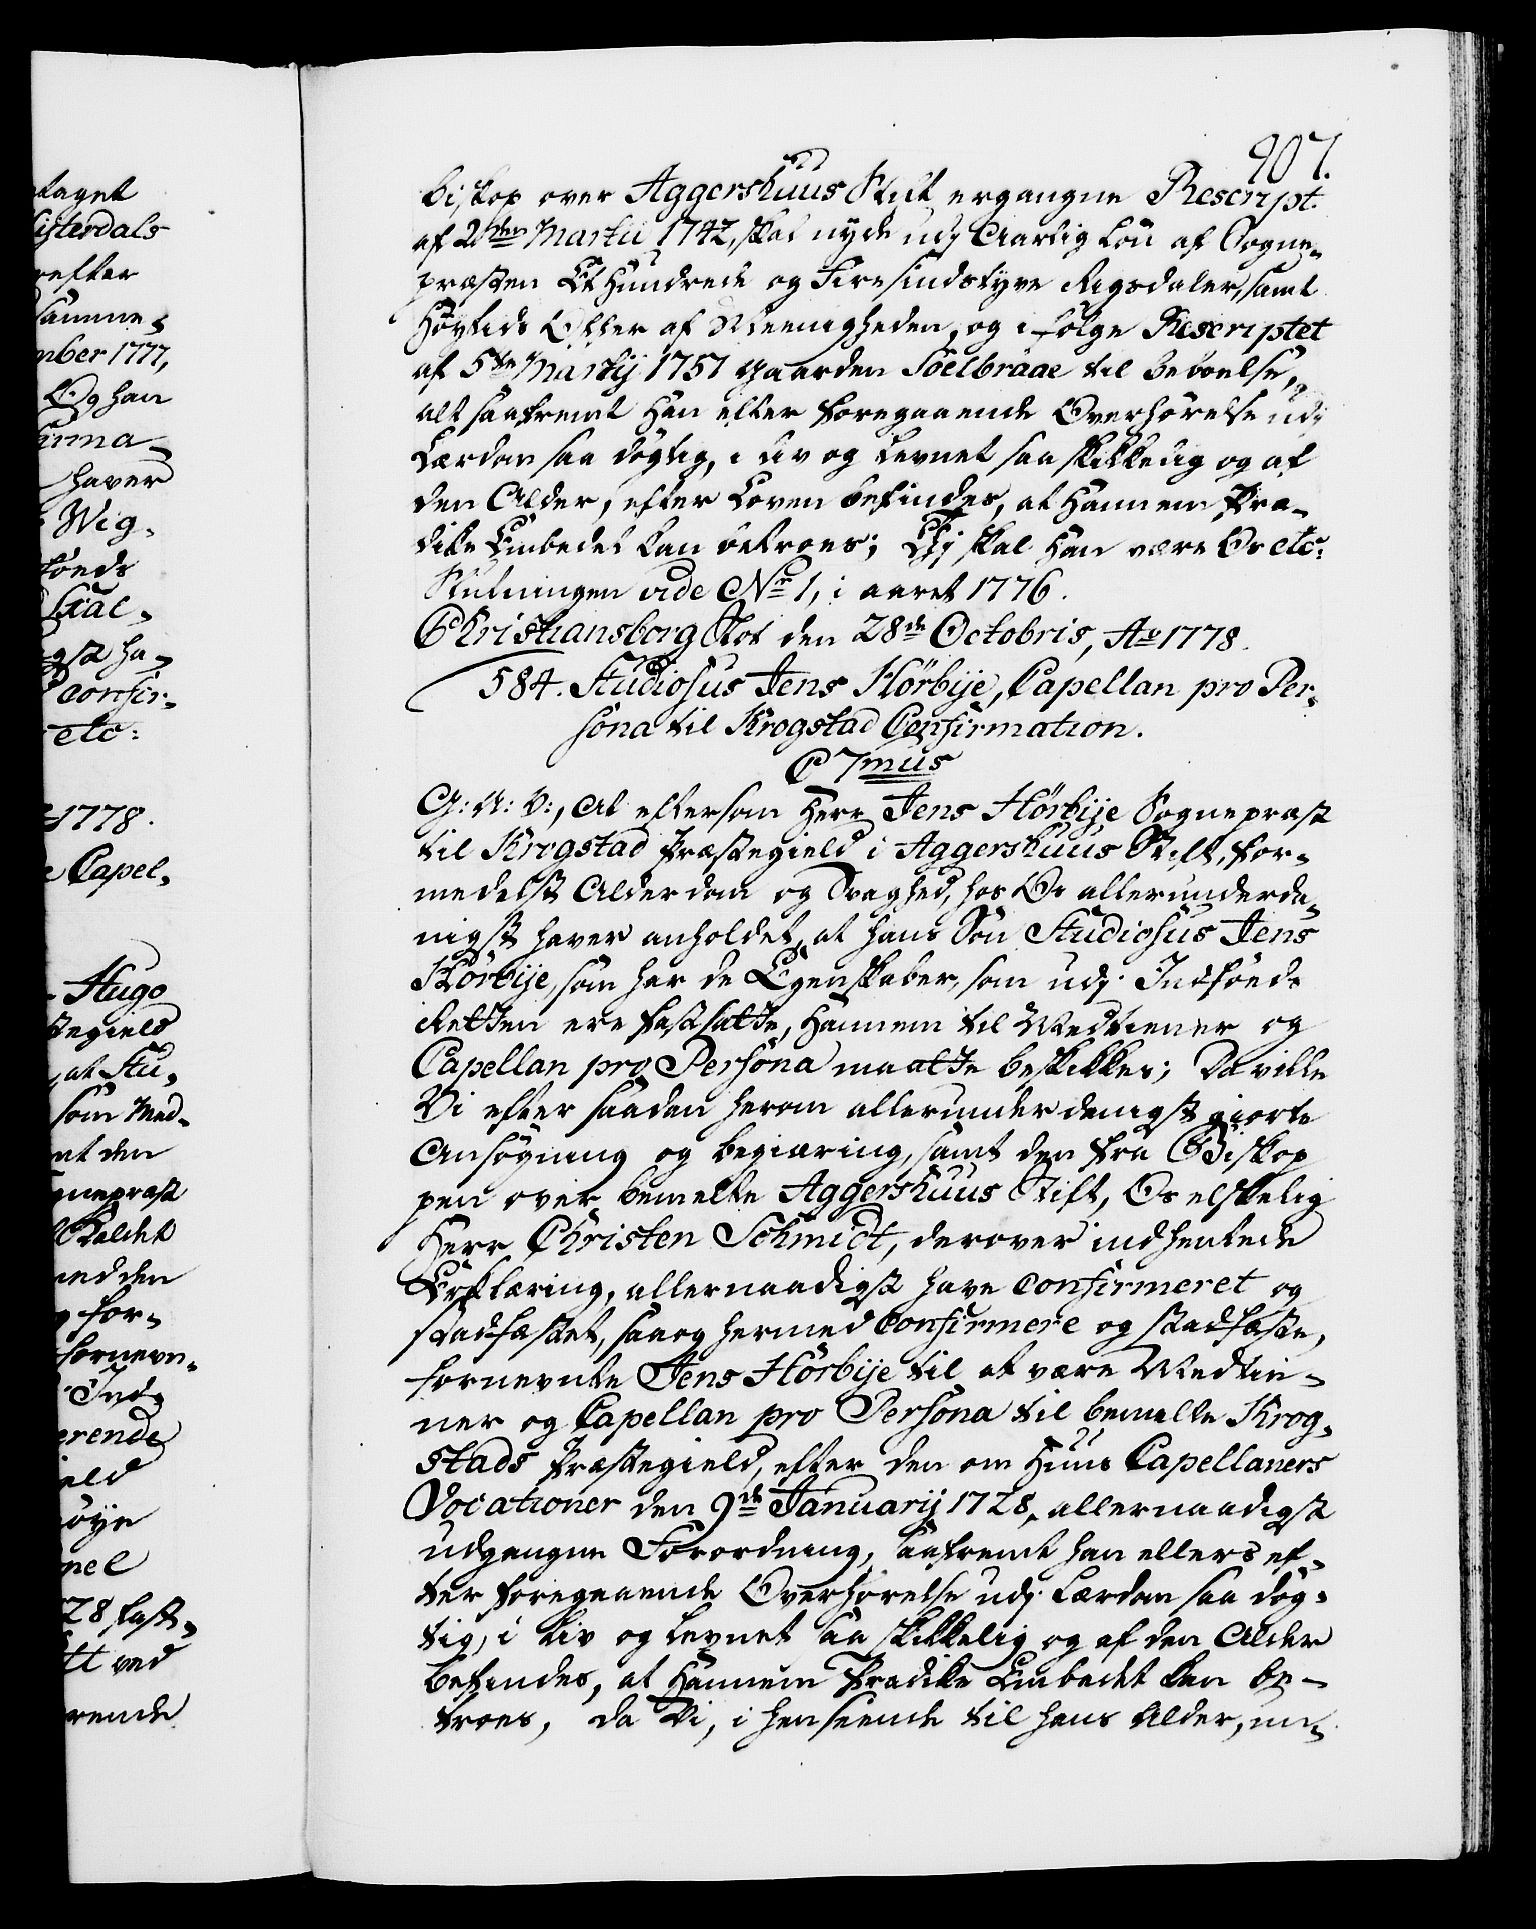 907.
taget
isterdals
refter
samme,
mber 1777,
Og han
firma-
haver
Wig-
föeds
Kal-
gst ha-
confir-
etc:
1778.
Capel-
Hugo
stegield
at Stu-
som Med-
nt den
gnepræst
Kaldet
med den
for-
fornevn-
Ind-
erende
ield
öye
nel
28 fast-
tt ved
rende
biskop over Aggershuus Stift ergangne Rescript
af 2den Martii 1742, skal nyde udj Aarlig Lön af Sogne-
præsten Et Hundrede og Firesindstyve Rigsdaler, samt
Höytids Offer af Meenigheden, og i fölge Rescriptet
af 5te Martij 1751 gaarden Söelbraae til beboelse,
alt saafremt han efter foregaaende Overhörelse udj
Lærdom saa dögtig, i Liv og Levnet saa skikkelig og af
den Alder, efter Loven befindes, at Hannem Præ-
dike Embedet kan betroes; Thj skal Han være Os etc:
Slutningen vide No 1, i aaret 1776.
Christiansborg Slot den 28de Octobris, Ao 1778.
584. Studiosus Jens Hörbije, Capellan pro Per-
sona til Krogstad Confirmation.
C 7mus
G: A: V:, At eftersom Herr Jens Hörbije Sognepræst
til Krogstad Præstegield i Aggershuus Stift, for-
medelst Alderdom og Svaghed, hos Os allerunderda-
nigst haver anholdet, at hans Sön Studiosus Jens
Hörbije, som har de Egenskaber, som udj Indföeds
Retten ere fastsatte, Hannem til Medtiener og
Capellan pro Persona maatte beskikkes; Da ville
Vi efter saadan herom allerunderdanigst giorte
Ansögning og begiæring, samt den fra Biskop
pen over bemelte Aggershuus Stift, Os elskelig
Herr Christen Schmidt, derover indhentede
Erklæring, allernaadigst have confirmeret og
stadfæstet, saa og hermed confirmere og stadfæste,
fornevnte Jens Hörbije til at være Medtie-
ner og Capellan pro Persona til bemelte Krog-
stads Præstegield, efter den om Huus Capellaners
Vocationer den 9de Januarij 1728, allernaadigst
udgangne Forordning, saafremt han ellers ef-
ter foregaaende Overhörelse udj Lærdom saa dög-
tig, i Liv og Levnet saa skikkelig og af den Alder
befindes, at Hannem Prædike Embedet kan be-
troes, da Vi, i henseende til hans Alder, un-